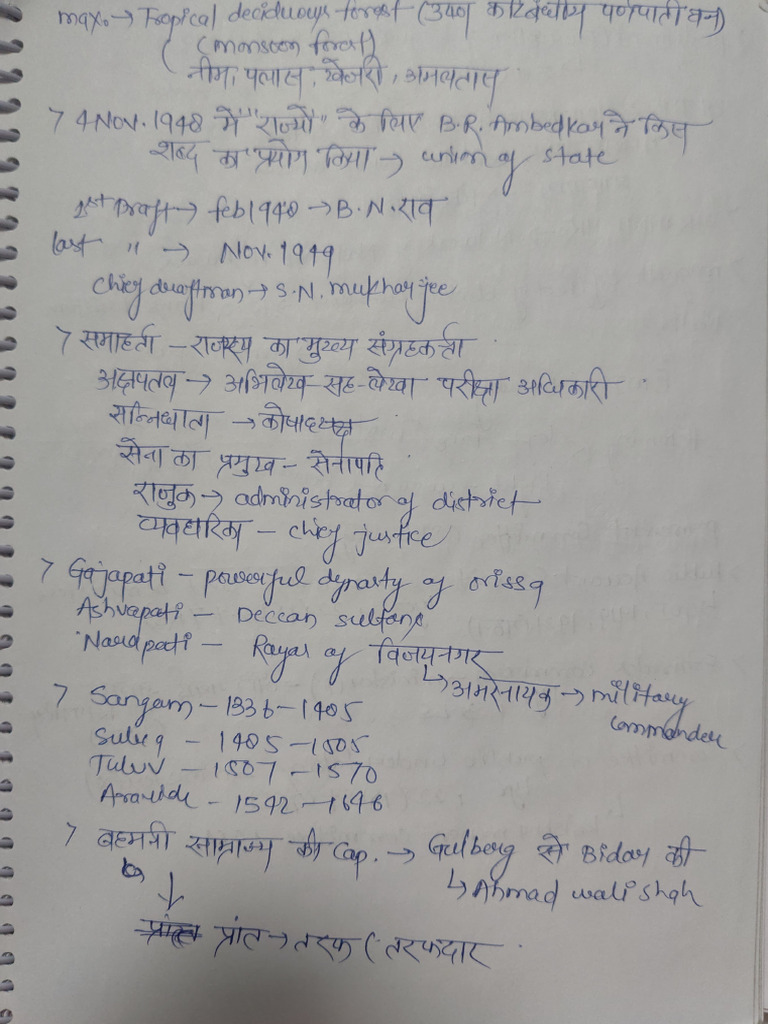 max. → Tropical deciduous forest (उष्ण कटिबंधीय पर्णपाती वन)
(monsoon forest)
( नीम, पलास, खेजरी, अमलतास
> 4 Nov. 1948 में "राज्यों" के लिए B.R. Ambedkar ने किस
शब्द का प्रयोग किया → union of state
1st Draft → feb 1948 → B.N. राव
last " → Nov. 1949
Chief draftman → S.N. mukharjee
> समाहर्ता – राजस्व का मुख्य संग्रहकर्ता
अक्षपतल → अभिलेख सह-लेखा परीक्षा अधिकारी
सन्निधाता → कोषाध्यक्ष
सेना का प्रमुख – सेनापति
राजुक → administrator of district
व्यवहारिका – chief justice
> Gajapati – powerful dynasty of orissa
Ashvapati – Deccan sultans
Narapati – Rayas of विजयनगर
↳ अमरनायक → military
commander
> Sangam – 1336 – 1485
Suluq – 1485 – 1505
Tuluv – 1507 – 1570
Aravidu – 1542 – 1646
> बहमनी साम्राज्य की Cap. → Gulberg से Bidar की
↳ Ahmad wali shah
↓
प्रांत → तरफ ( तरफदार